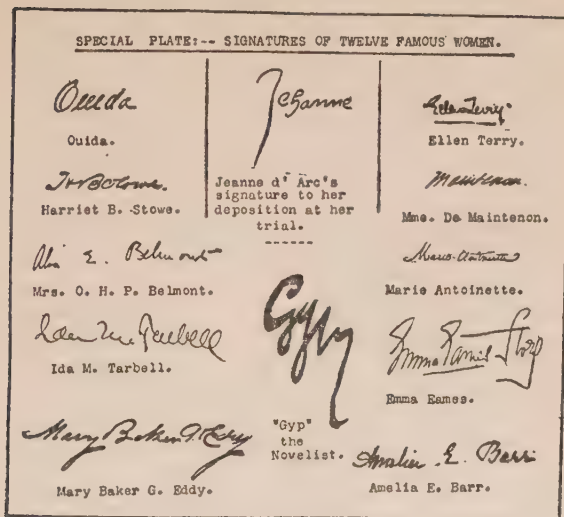 SPECIAL PLATE:-- SIGNATURES OF TWELVE FAMOUS WOMEN.
Ouida
Ouida.
HBStowe.
Harriet B. Stowe.
Alva E. Belmont
Mrs. O. H. P. Belmont.
Ida M. Tarbell
Ida M. Tarbell.
Mary Baker G. Eddy
Mary Baker G. Eddy.
Jehanne
Jeanne d' Arc's
signature to her
deposition at her
trial.
------
Gyp
"Gyp"
the
Novelist.
Ellen Terry
Ellen Terry.
Maintenon.
Mme. De Maintenon.
Marie Antoinette
Marie Antoinette.
Emma Eames Story
Emma Eames.
Amelia E. Barr
Amelia E. Barr.